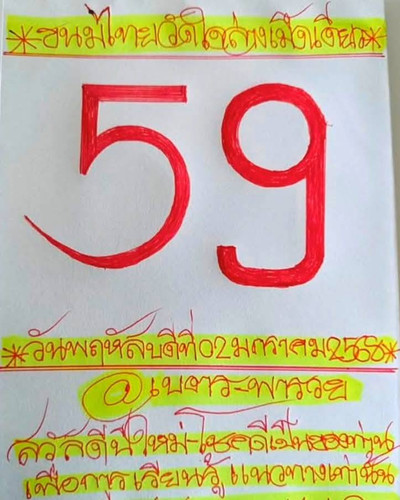 *ขนมไทยวัดใจล่างเม็ดเดียว*
59
*วันพฤหัสบดีที่02มกราคม2568*
@เบตาระพารวย
สวัสดีปีใหม่โชคดีเป็นของท่าน
เพื่อการเรียนรู้แนวทางเท่านั้น